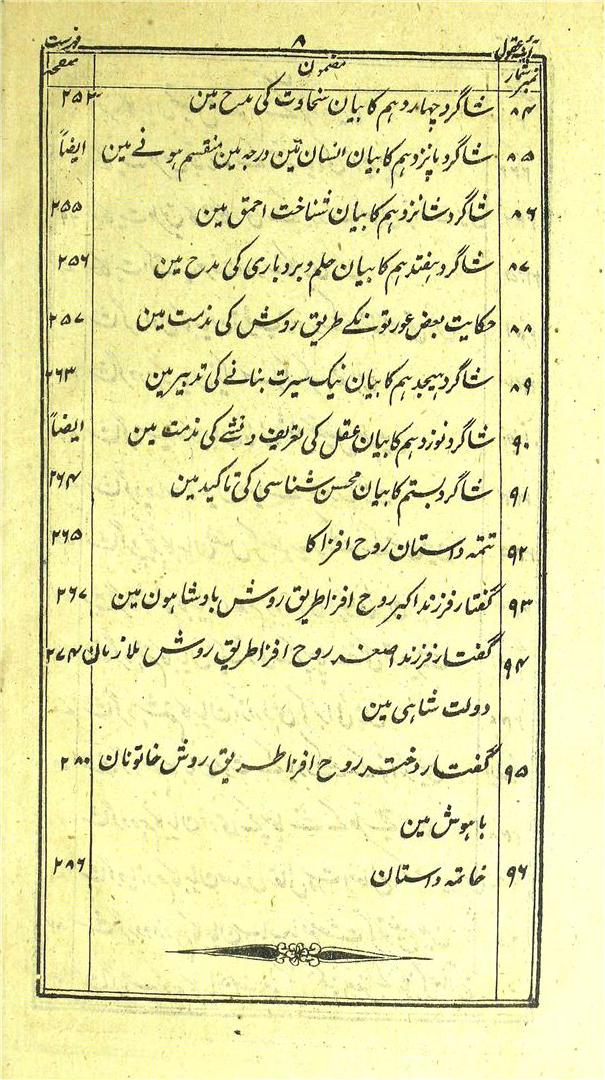 آئینہ عقول ۸ فہرست
نمبر شمار مضمون صفحہ
۸۴ شاگرد چہاردہم کا بیان سخاوت کی مدح مین ۲۵۳
۸۵ شاگرد پانزدہم کا بیان انسان تین درجہ مین منقسم ہونے مین ایضاً
۸۶ شاگرد شانزدہم کا بیان شناخت احمق مین ۲۵۵
۸۷ شاگرد ہفتدہم کا بیان حلم و بردباری کی مدح مین ۲۵۶
۸۸ حکایت بعض عورتونکے طریق روش کی مذمت مین ۲۵۷
۸۹ شاگرد ہیجدہم کا بیان نیک سیرت بنانے کی تدبیر مین ۲۶۳
۹۰ شاگرد نوزدہم کا بیان عقل کی تعریف و نشے کی مذمت مین ایضاً
۹۱ شاگرد بستم کا بیان محسن شناسی کی تاکید مین ۲۶۴
۹۲ تتمہ داستان روح افزا کا ۲۶۵
۹۳ گفتار فرزند اکبر روح افزا طریق روش بادشاہون مین ۲۶۷
۹۴ گفتار فرزند اصغر روح افزا طریق روش ملازمان ۲۷۴
دولت شاہی مین
۹۵ گفتار دختر روح افزا طریق روش خاتونان ۲۸۰
باہوش مین
۹۶ خاتمہ داستان ۲۸۶